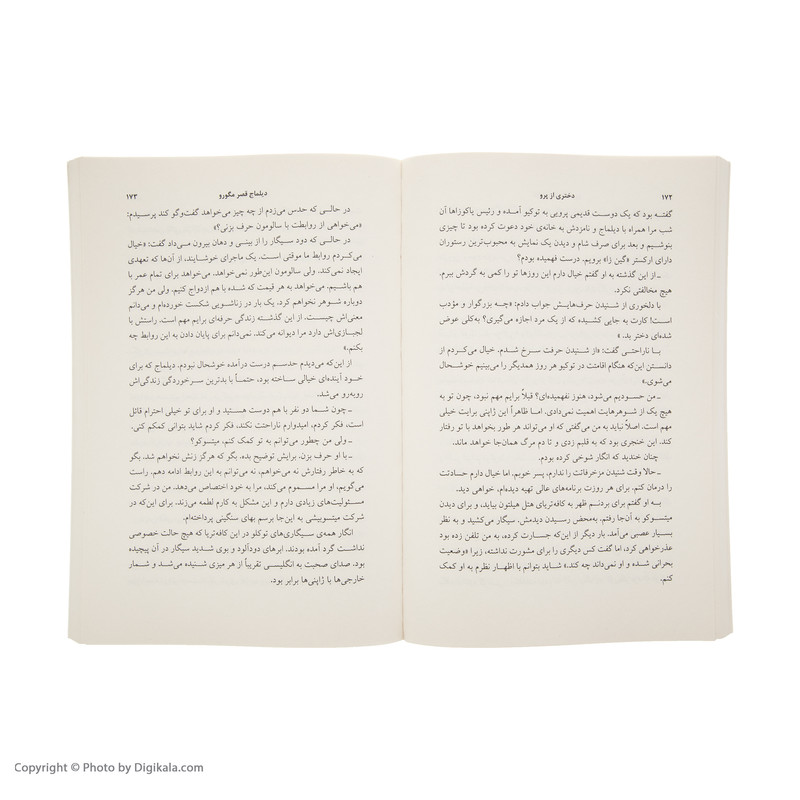 ۱۷۲
دختری از پرو
گفته بود که یک دوست قدیمی پرویی به توکیو آمده و رئیس یاکوزاها آن
شب مرا همراه با دیلماج و نامزدش به خانه‌ی خود دعوت کرده بود تا چیزی
بنوشیم و بعد برای صرف شام و دیدن یک نمایش به محبوب‌ترین رستوران
دارای ارکستر «گین زا» برویم. درست فهمیده بودم؟
ـ از این گذشته به او گفتم خیال دارم این روزها تو را کمی به گردش ببرم.
هیچ مخالفتی نکرد.
با دلخوری از شنیدن حرف‌هایش جواب دادم: «چه بزرگوار و مؤدب
است! کارت به جایی کشیده که از یک مرد اجازه می‌گیری؟ به‌کلی عوض
شده‌ای دختر بد.»
با ناراحتی گفت: «از شنیدن حرفت سرخ شدم. خیال می‌کردم از
دانستن این‌که هنگام اقامتت در توکیو هر روز همدیگر را می‌بینیم خوشحال
می‌شوی.»
ـ من حسودیم می‌شود، هنوز نفهمیده‌ای؟ قبلاً برایم مهم نبود، چون تو به
هیچ یک از شوهرهایت اهمیت نمی‌دادی. اما ظاهراً این ژاپنی برایت خیلی
مهم است. اصلاً نباید به من می‌گفتی که او می‌تواند هر طور بخواهد با تو رفتار
کند. این خنجری بود که به قلبم زدی و تا دم مرگ همان‌جا خواهد ماند.
چنان خندید که انگار شوخی کرده بودم.
ـ حالا وقت شنیدن مزخرفاتت را ندارم، پسر خوبم. اما خیال دارم حسادتت
را درمان کنم. برای هر روزت برنامه‌های عالی تهیه دیده‌ام، خواهی دید.
به او گفتم برای بردنم ظهر به کافه‌تریای هتل هیلتون بیاید، و برای دیدن
میتسوکو به آن‌جا رفتم. به‌محض رسیدن دیدمش. سیگار می‌کشید و به نظر
بسیار عصبی می‌آمد. بار دیگر از این‌که جسارت کرده، به من تلفن زده بود
عذرخواهی کرد، اما گفت کس دیگری را برای مشورت نداشته، زیرا «وضعیت
بحرانی شده و او نمی‌داند چه کند.» شاید بتوانم با اظهار نظرم به او کمک
کنم.
دیلماج قصر مگورو
۱۷۳
در حالی که حدس می‌زدم از چه چیز می‌خواهد گفت‌وگو کند پرسیدم:
«می‌خواهی از روابطت با سالومون حرف بزنی؟»
در حالی که دود سیگار را از بینی و دهان بیرون می‌داد گفت: «خیال
می‌کردم روابط ما موقتی است. یک ماجرای خوشایند، از آن‌ها که تعهدی
ایجاد نمی‌کند. ولی سالومون این‌طور نمی‌خواهد. می‌خواهد برای تمام عمر با
هم باشیم. می‌خواهد به هر قیمت که شده با هم ازدواج کنیم. ولی من هرگز
دوباره شوهر نخواهم کرد. یک بار در زناشویی شکست خورده‌ام و می‌دانم
معنی‌اش چیست. از این گذشته زندگی حرفه‌ای برایم مهم است. راستش با
لجبازی‌اش دارد مرا دیوانه می‌کند. نمی‌دانم برای پایان دادن به این روابط چه
بکنم.»
از این‌که می‌دیدم حدسم درست درآمده خوشحال نبودم. دیلماج که برای
خود آینده‌ای خیالی ساخته بود، حتماً با بدترین سرخوردگی زندگی‌اش
روبه‌رو می‌شد.
ـ چون شما دو نفر با هم دوست هستید و او برای تو خیلی احترام قائل
است، فکر کردم، امیدوارم ناراحتت نکند، فکر کردم شاید بتوانی کمکم کنی.
ـ ولی من چطور می‌توانم به تو کمک کنم، میتسوکو؟
ـ با او حرف بزن. برایش توضیح بده. بگو که هرگز زنش نخواهم شد. بگو
که به خاطر رفتارش نه می‌خواهم، نه می‌توانم به این روابط ادامه دهم. راست
می‌گویم، او مرا مسموم می‌کند، مرا به خود اختصاص می‌دهد. من در شرکت
مسئولیت‌های زیادی دارم و این مشکل به کارم لطمه می‌زند. برای این‌که در
شرکت میتسوبیشی به این‌جا برسم بهای سنگینی پرداخته‌ام.
انگار همه‌ی سیگاری‌های توکلو در این کافه‌تریا که هیچ حالت خصوصی
نداشت گرد آمده بودند. ابرهای دودآلود و بوی شدید سیگار در آن پیچیده
بود. صدای صحبت به انگلیسی تقریباً از هر میزی شنیده می‌شد و شمار
خارجی‌ها با ژاپنی‌ها برابر بود.
Copyright © Photo by Digikala.com